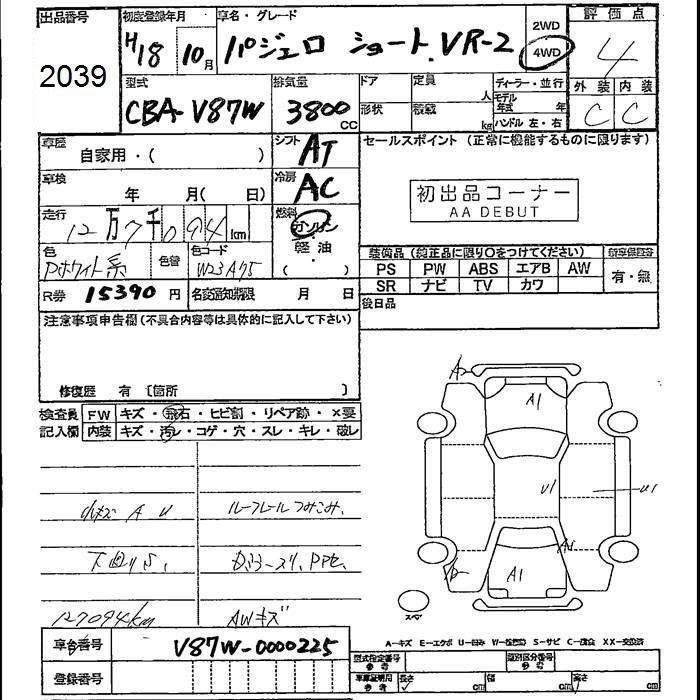 出品番号 初度登録年月 車名・グレード 2WD 評価点
2039 H18 10月 パジェロ ショート.VR-2 4WD 4
型式 排気量 ドア 定員 人 ディーラー・並行 外装 内装
CBA-V87W 3800cc 形状 積載 kg モデル年式 年 ハンドル 左・右 C C
車歴 自家用・( ) シフト AT セールスポイント (正常に機能するものに限ります)
車検 年 月( 日) 冷房 AC 初出品コーナー
AA DEBUT
走行 12万7千094km 燃料 ガソリン・軽油・( )
色 Pホワイト系 色替 色コード W23A75 装備品 (純正品に限り○をつけてください)
PS PW ABS エアB AW 有・無
SR ナビ TV カワ
R券 15390円 名変通知期限 月 日 後日品
注意事項申告欄(不具合内容等は具体的に記入して下さい)
修復歴 有 〔箇所 〕
検査員 FW キズ・飛石・ヒビ割・リペア跡・×要
記入欄 内装 キズ・汚レ・コゲ・穴・スレ・キレ・破レ
A1
小キズ A U ルーフレールつみこみ.
U1 U1
下廻りS.
A1
127094km AWキズ
スペア
車台番号 V87W-0000225
A-キズ E-エクボ U-凹み S-サビ C-腐食 XX-交換済
登録番号 型式指定番号 参考 類別区分番号 参考
車庫証明用 参考 長さ cm 幅 cm 高さ cm